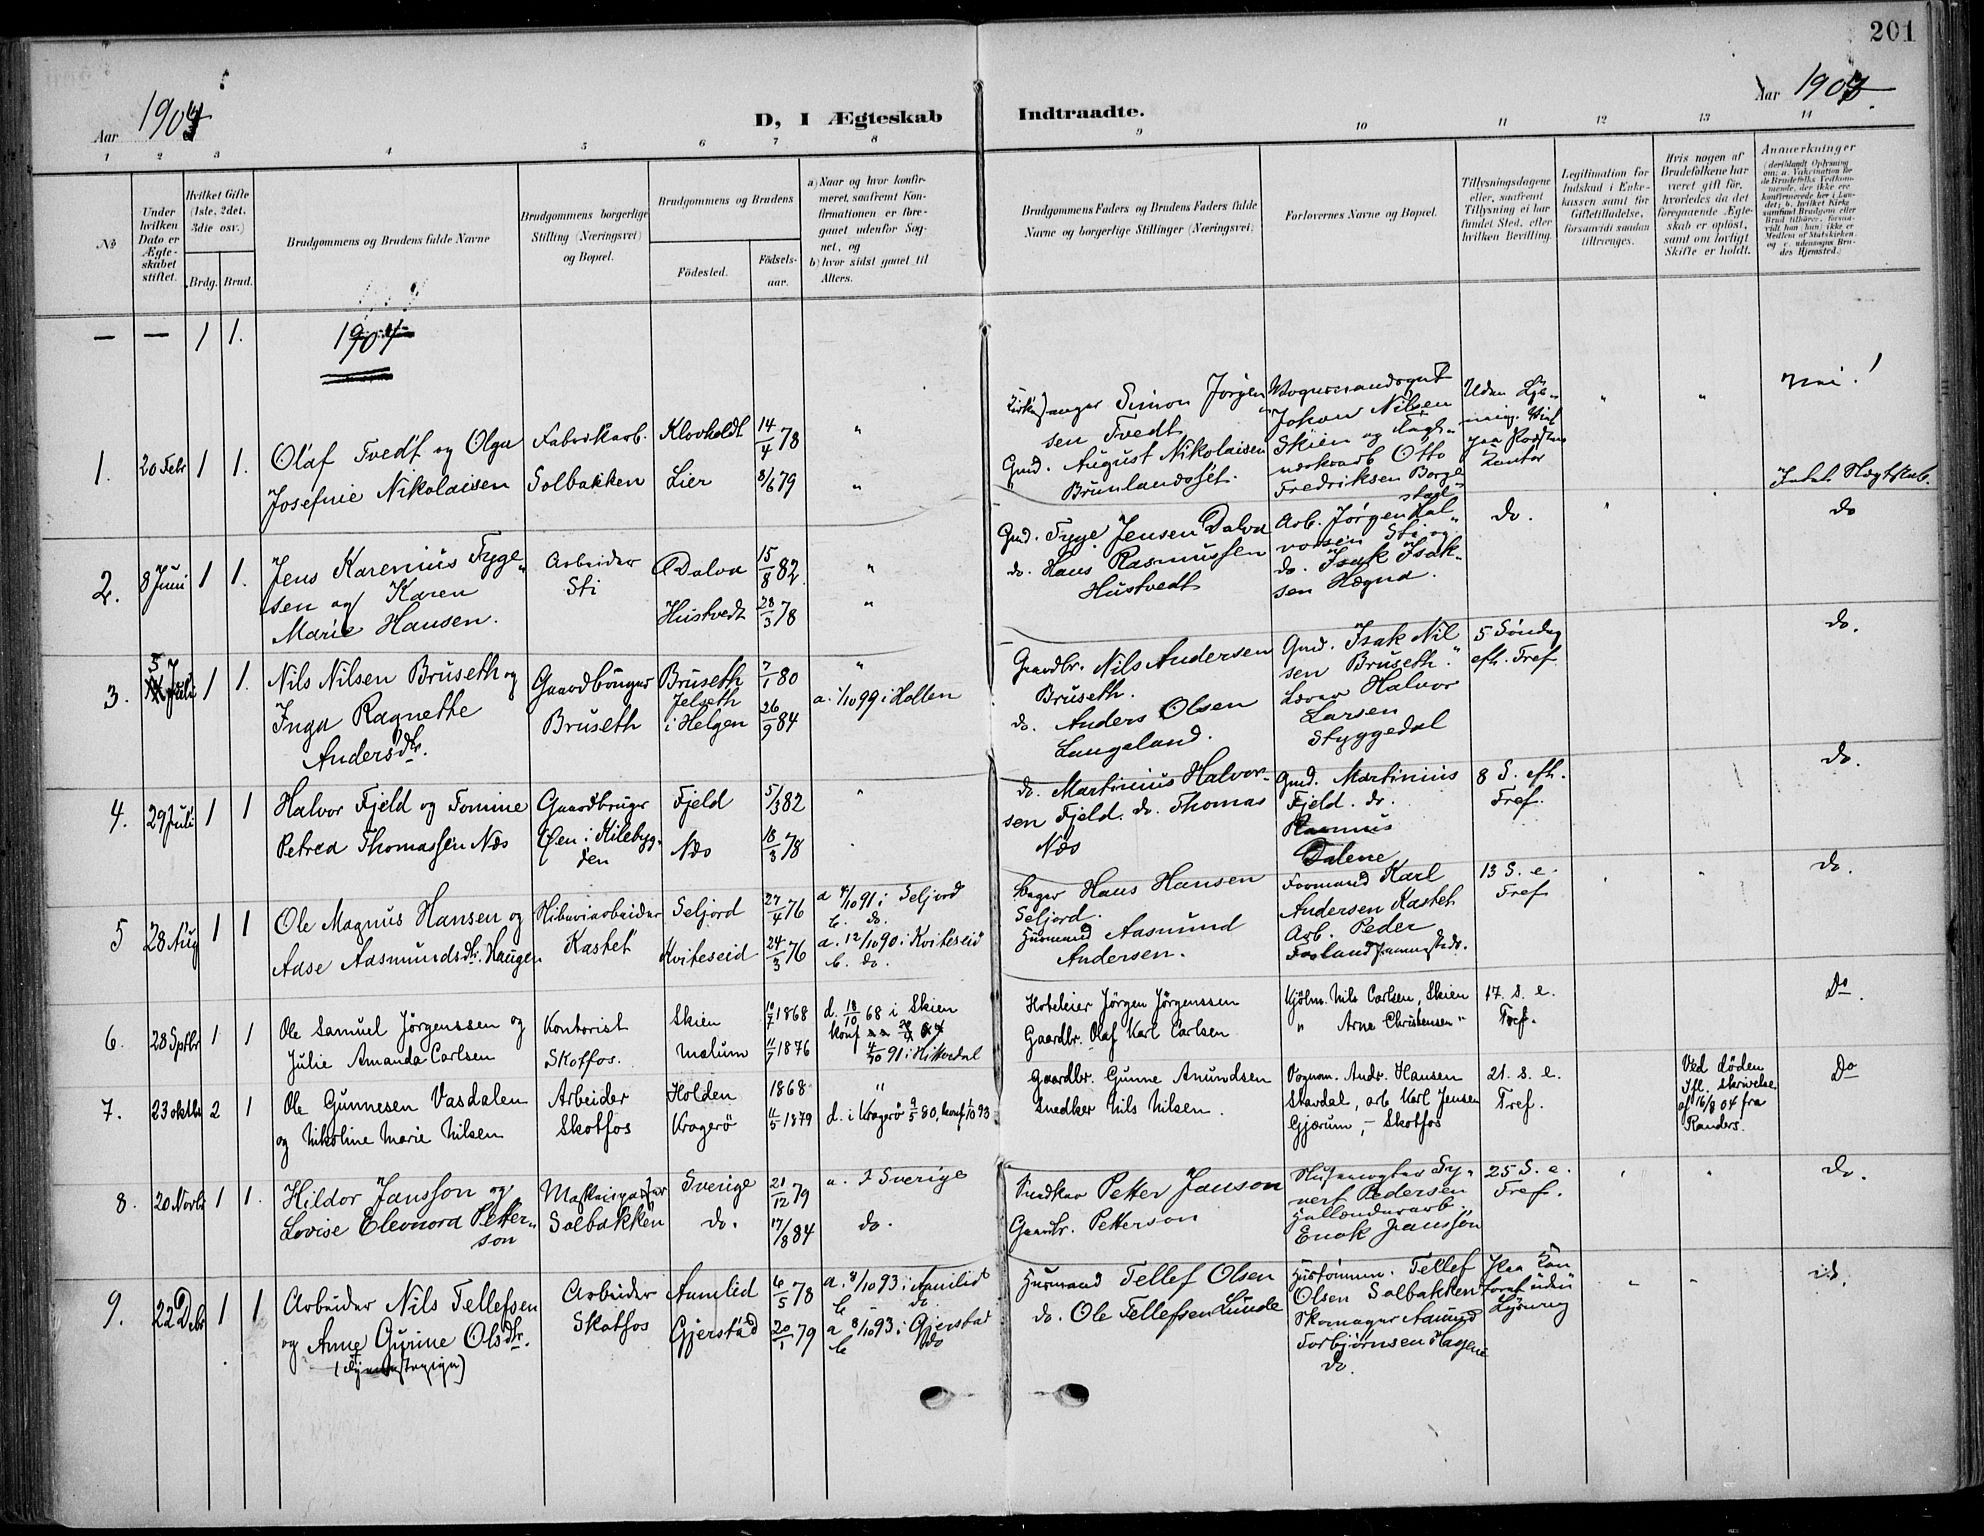 201
Aar 1904
D, I Ægteskab Indtraadte.
Aar 190
1 2 3 4 5 6 7 8 9 10 11 12 13 14
No
Under hvilken Dato er Ægteskabet stiftet.
Hvilket Gifte (1ste, 2det, 3die osv.)
Brdg. Brud.
Brudgommens og Brudens fulde Navne
Brudgommens borgerlige Stilling (Næringsvei) og Bopæl.
Brudgommens og Brudens
Födested.
Födselsaar.
a) Naar og hvor konfirmeret, saafremt Konfirmationen er foregaaet udenfor Sognet, og
b) hvor sidst gaaet til Alters.
Brudgommens Faders og Brudens Faders fulde Navne og borgerlige Stillinger (Næringsvei)
Forlovernes Navne og Bopæl.
Tillysningsdagene eller, saafremt Tillysning ei har fundet Sted, efter hvilken Bevilling.
Legitimation for Indskud i Enkekassen samt for Giftetilladelse, forsaavidt saadan tiltrænges.
Hvis nogen af Brudefolkene har været gift før, hvorledes da det foregaaende Ægteskab er opløst, samt om lovligt Skifte er holdt.
Anmerkninger
— — 1 1. 1904
1. 20 Febr 1 1.
Olaf Tvedt og Olga
Josefine Nikolaisen
Fabrikarb.
Solbakken
Klovholdt
Lier
14/4 78
8/6 79
" "
anger Simon Jörgen
sen Tvedt
Gmd. August Nikolaisen
Brunlandsset.
Johan Nilsen
Skien og
Otto
Fredriksen Borge
stad
Kontor
" "
nei!
2. 8 Juni 1 1.
Jens Karenius Tyge-
sen og Karen
Marie Hansen.
Arbeider
Sti
Dalva
Hustvedt
15/8 82
28/3 78
" "
Gmd. Tyge Jensen Dalva
do. Hans Rasmussen
Hustvedt
Arb. Jörgen Hal-
vorsen Sti og
do. Isak Isak-
sen Hægna.
do.
do
3. 5 Juli 1 1.
Nils Nilsen Bruseth og
Inga Ragnethe
Andersdtr.
Gaardbruger
Bruseth
Bruseth
Jelseth
i Helgen
7/1 80
26/9 84
"
a. 1/10 99 i Hollen
Gaardbr. Nils Andersen
Bruseth.
do. Anders Olsen
Langeland.
Gmd. Isak Nil
sen Bruseth.
Lærer Halvor
Larsen
Styggedal
5 Söndag
eft. Tref
do.
4. 29 Juli 1 1
Halvor Fjeld og Tomine
Petrea Thomassen Næs
Gaardbruger
Öen i Kilebyg-
den
Fjeld
Næs
5/3 82
18/3 78
"
do. Martinius Halvor-
sen Fjeld. do. Thomas
Næs
Gmd. Martinius
Fjeld. do.
Rasmus
Dalene
8 S. eft.
Tref.
do.
5 28 Aug 1 1
Ole Magnus Hansen og
Aase Aasmundsdtr. Haugen
Kastet
Seljord
Kviteseid
27/4 76
24/3 76
a /10 91 i Seljord
b. do.
a. 12/10 90 i Kviteseid
b. do.
Hans Hansen
Seljord.
Husmand Aasmund
Andersen.
Formand Karl
Andersen Kastet
Arb. Peder
13 S. e.
Tref
" "
do.
6. 28 Sptbr 1 1
Ole Samuel Jörgenssen og
Julie Amanda Carlsen
Kontorist
Skotfos.
Skien
Mælum
10/7 1868
11/7 1876
d. 18/10 68 i Skien
konf
4/10 91 i Hitterdal
Hoteleier Jörgen Jörgenssen
Gaardbr. Olaf Karl Carlsen
Kjölm. Nils Carlsen, Skien
" Arne Christensen "
17. S. e.
Tref.
Do.
7. 23 oktbr 2 1
Ole Gunnesen Vasdalen
og Nikoline Marie Nilsen
Arbeider
Skotfos
Holden
Kragerö
1868
4/5 1879
"
d. i Kragerö 9/5 80, konf 1/10 93
Gaardbr. Gunne Amundsen
Snedker Nils Nilsen.
Vognm. Andr. Hansen
Stavdal, arb Karl Jensen
Gjærum, - Skotfos
21. S. e.
Tref.
Ved döden
Ifl. skrivelse
af 16/8 04 fra
Randers.
Do
8. 20 Novbr 1 1.
Hildor Jansson og
Lovise Eleonora Petter-
son
Solbakken
Sverige
do.
21/12 79
17/8 84
a. I Sverige
do.
Snedker Petter Janson
Gaardbr. Petterson
Pedersen
Enok Jansson
25 S. e.
Tref.
" "
do.
9. 22 Debr 1 1
Arbeider Nils Tellefsen
og Anne Gurine Olsdtr.
Arbeider
Skotfos
Aamlid
Gjerstad
6/5 78
20/1 79
a. 8/10 93 i Aamlid
b do
a 8/10 93 i Gjerstad
b do
Husmand Tellef Olsen
do. Ole Tellefsen Lunde
Tellef
Olsen Solbakken
Skomager Aamund
Torbjörnsen Hagene
do.
" "
do.